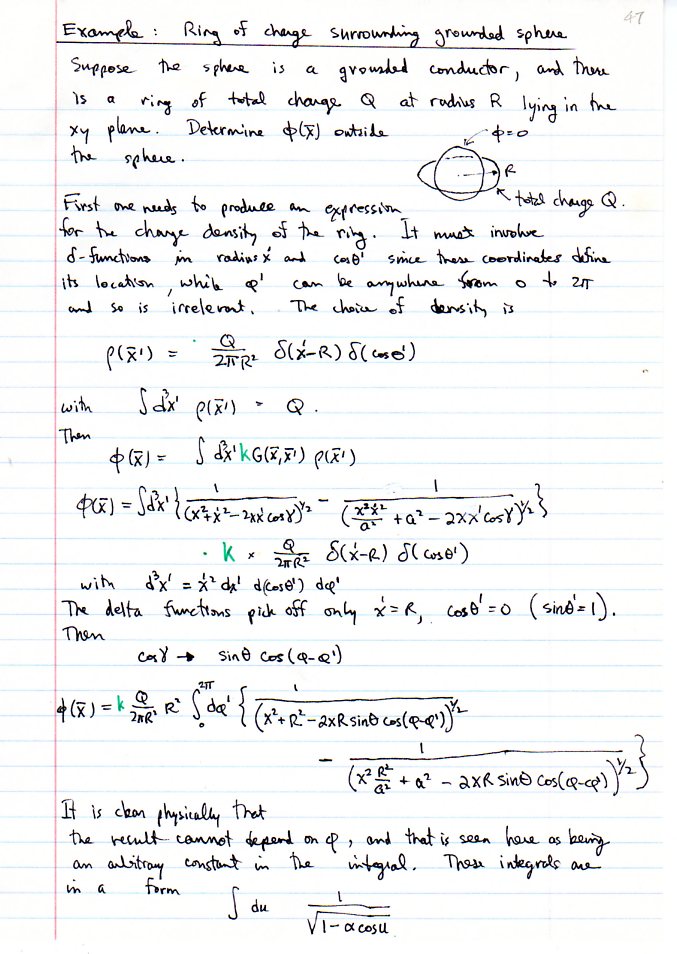 47
Example : Ring of charge surrounding grounded sphere
Suppose the sphere is a grounded conductor, and there
is a ring of total charge Q at radius R lying in the
xy plane. Determine ϕ(x̄) outside
the sphere.
ϕ=0
R
total charge Q.
First one needs to produce an expression
for the charge density of the ring. It must involve
δ-functions in radius x' and cosθ' since these coordinates define
its location, while φ' can be anywhere from 0 to 2π
and so is irrelevant. The choice of density is
ρ(x̄') = Q/2πR² δ(x'-R) δ(cosθ')
with ∫d³x' ρ(x̄') = Q.
Then
ϕ(x̄) = ∫ d³x' k G(x̄,x̄') ρ(x̄')
ϕ(x̄) = ∫d³x' { 1/(x²+x'²-2xx'cosγ)^1/2 - 1/(x²x'²/a² + a² - 2xx'cosγ)^1/2 }
· k × Q/2πR² δ(x'-R) δ(cosθ')
with d³x' = x'² dx' d(cosθ') dφ'
The delta functions pick off only x'=R, cosθ'=0 (sinθ'=1).
Then
cosγ → sinθ cos(φ-φ')
ϕ(x̄) = k Q/2πR² R² ∫₀^2π dφ' { 1/(x²+R²-2xR sinθ cos(φ-φ'))^1/2
- 1/(x² R²/a² + a² - 2xR sinθ cos(φ-φ'))^1/2 }
It is clear physically that
the result cannot depend on φ, and that is seen here as being
an arbitrary constant in the integral. These integrals are
in a form
∫ du 1/√(1-α cosu)